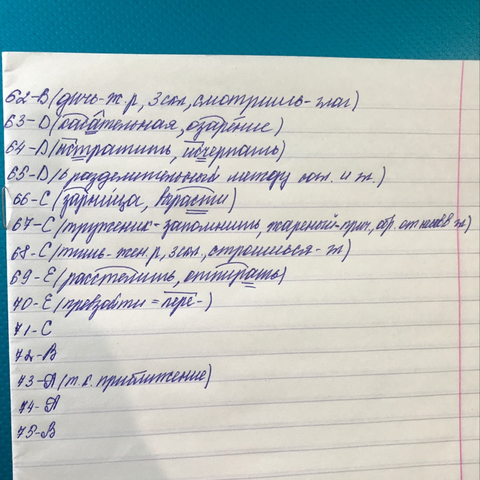 62-В (дичь-ж.р, 3 скл, смотришь-глаг)
63-D (обаятельная, озарение)
64-D (истратить, исчерпать)
65-D (ь разделительный между сог. и)
66-С (зарница, врасти)
67-С (труженик-запомнить, жареный-прич, обр. от
68-С (тишь-жен.р, 3 скл, строишься-
69-Е (расстелить, оттирать)
70-Е (превзойти = пере-)
71-С
72-В
73-А (т.к. приближение)
74-А
75-В